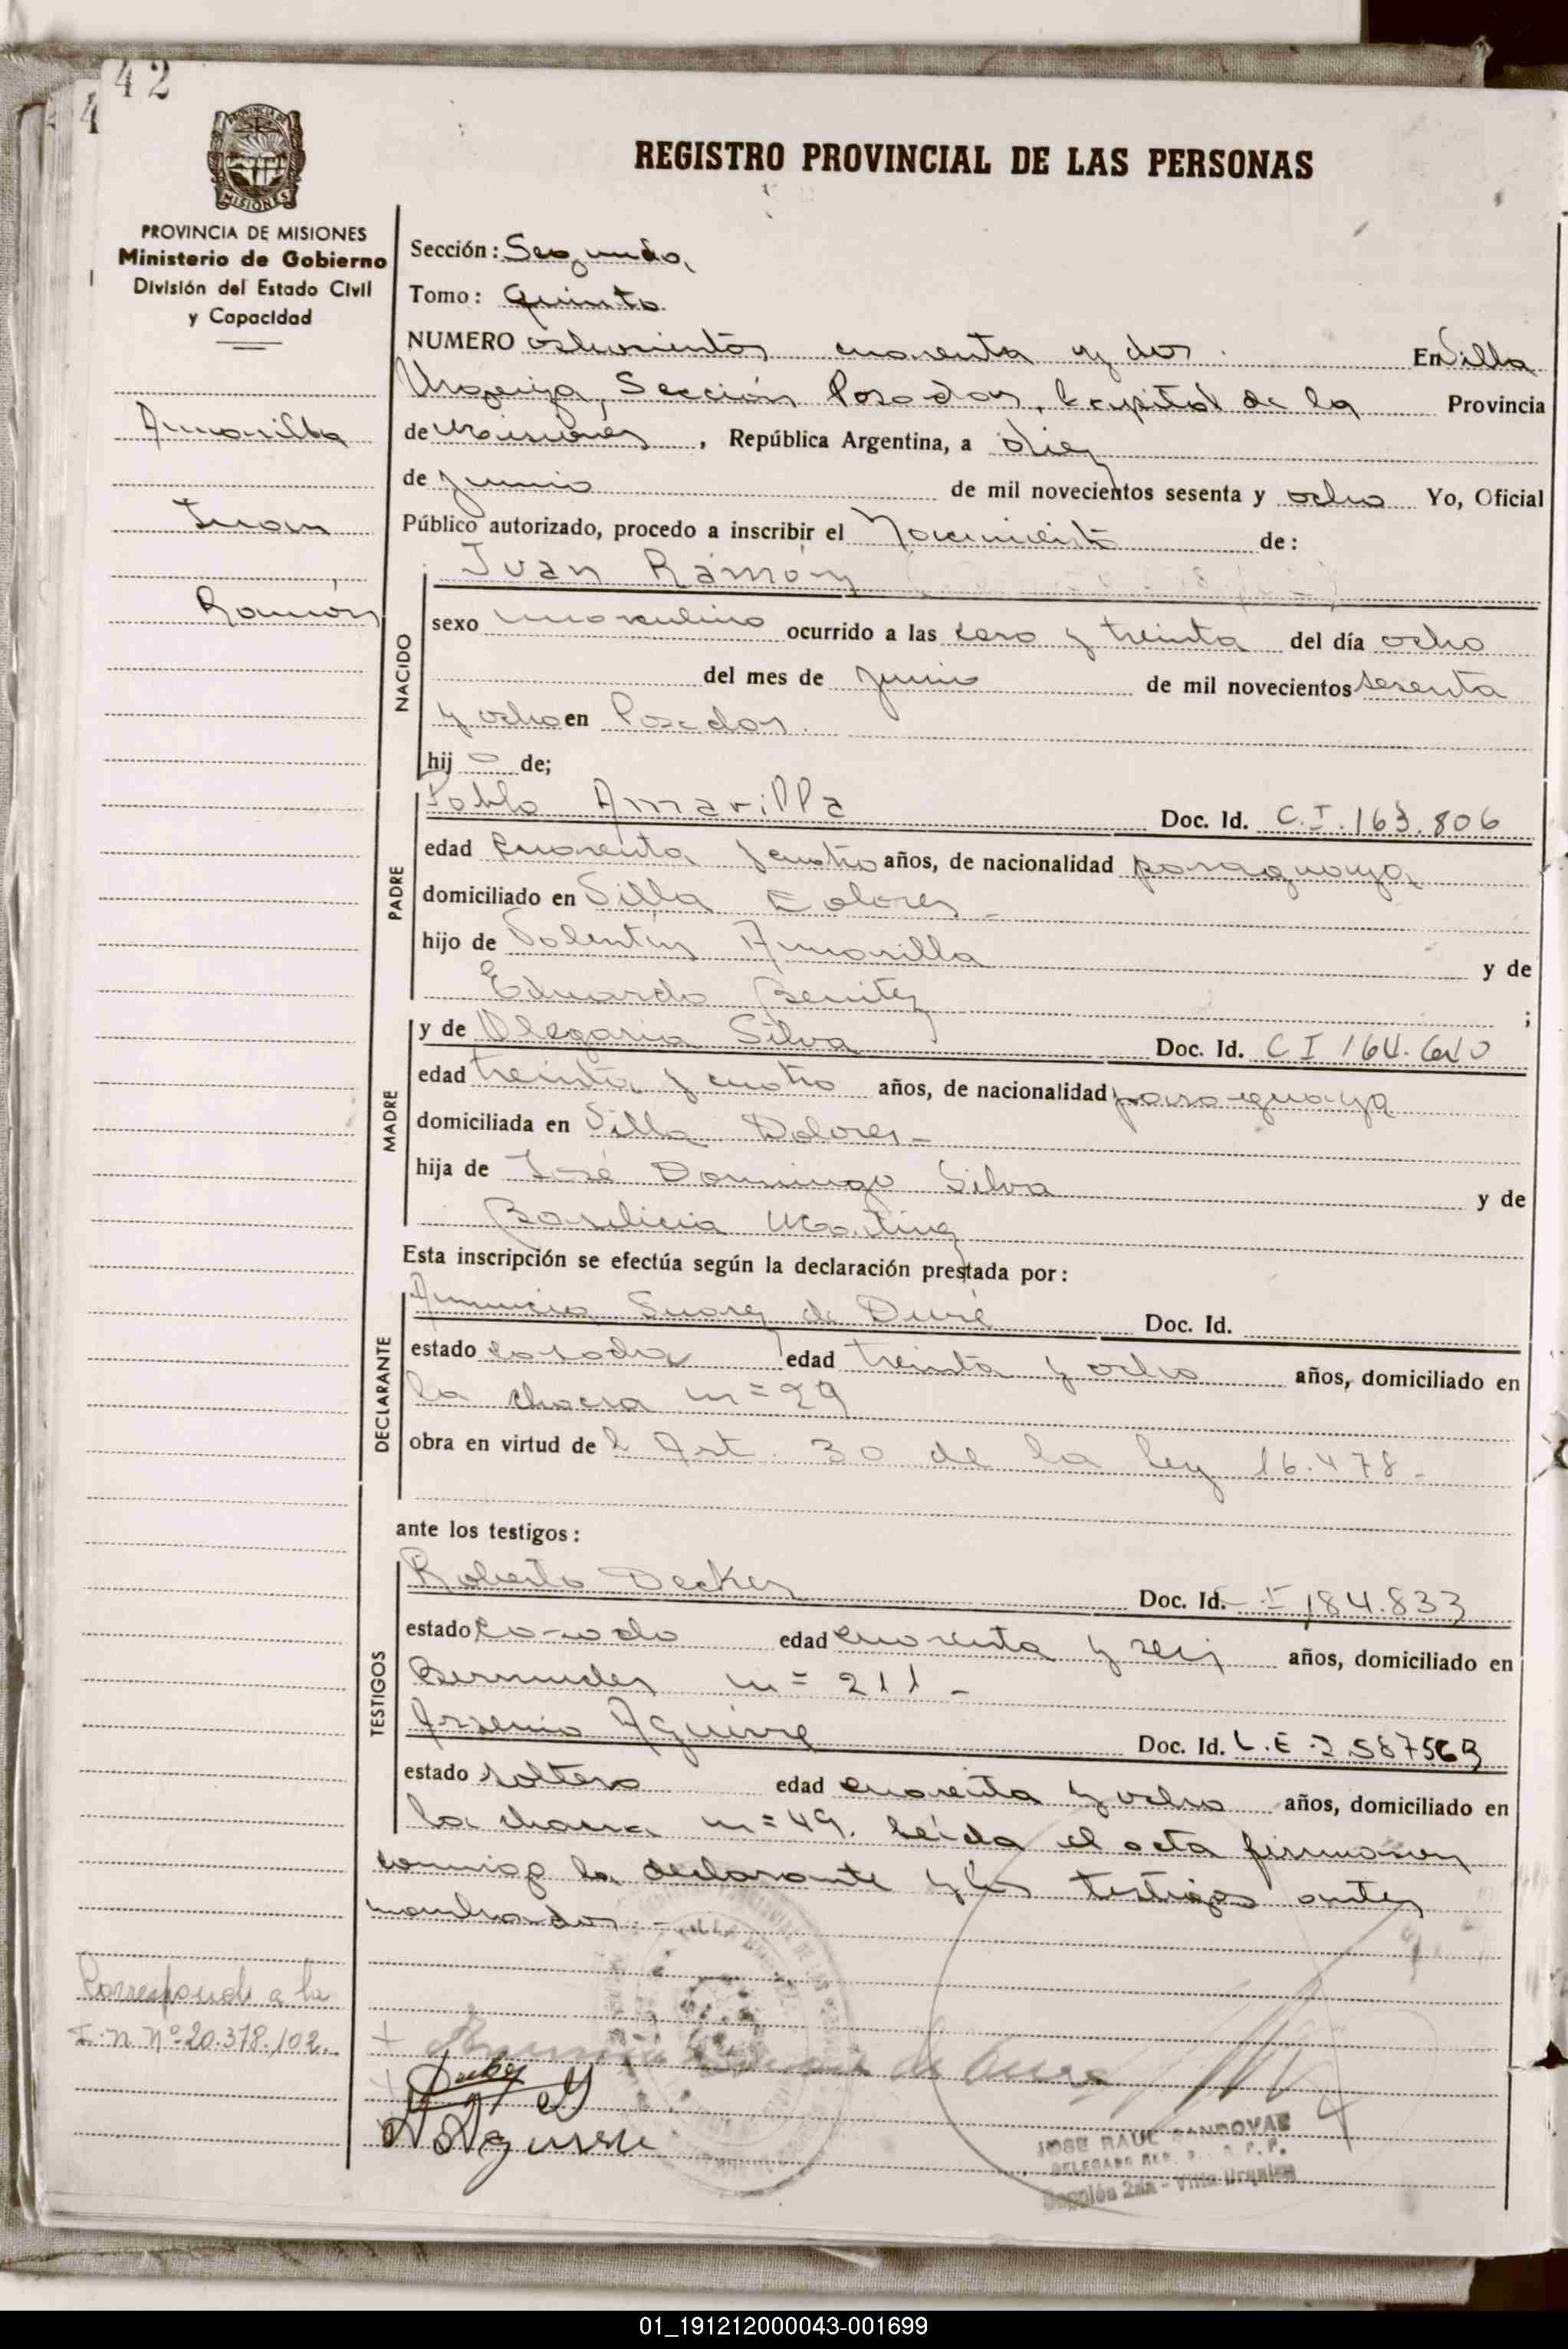 42
REGISTRO PROVINCIAL DE LAS PERSONAS
MISIONES
PROVINCIA DE MISIONES
Ministerio de Gobierno
División del Estado Civil
y Capacidad
Amarilla
Juan
Ramón
Sección: Segunda
Tomo: Quinto
NUMERO ochocientos cuarenta y dos. En Villa
Urquiza, Sección Posadas, Capital de la Provincia
de Misiones, República Argentina, a diez
de junio de mil novecientos sesenta y ocho Yo, Oficial
Público autorizado, procedo a inscribir el Nacimiento de:
Juan Ramón
NACIDO
sexo masculino ocurrido a las cero y treinta del día ocho
del mes de junio de mil novecientos sesenta
y ocho en Posadas.
hij o de;
PADRE
Pablo Amarilla Doc. Id. C.I. 163.806
edad cuarenta y cuatro años, de nacionalidad paraguaya
domiciliado en Villa Dolores -
hijo de Valentín Amarilla y de
Eduarda Benitez ;
MADRE
y de Olegaria Silva Doc. Id. C I 164.640
edad treinta y cuatro años, de nacionalidad paraguaya
domiciliada en Villa Dolores -
hija de José Domingo Silva y de
Basilicia Martinez
Esta inscripción se efectúa según la declaración prestada por:
DECLARANTE
Anuncia Suarez de Duré Doc. Id.
estado casada edad treinta y ocho años, domiciliado en
la chacra n= 29
obra en virtud del Art. 30 de la ley 16.478 -
ante los testigos:
TESTIGOS
Roberto Decker Doc. Id. I 184.833
estado casado edad cuarenta y seis años, domiciliado en
Bermudez n= 211 -
Arsenio Aguirre Doc. Id. L.E 2.587569
estado soltero edad cuarenta y ocho años, domiciliado en
la chacra n= 49. Leída el acta firmaron
conmigo la declarante y los testigos antes
nombrados. -
Corresponde a la
I.N. Nº 20.378.102.
JOSE RAUL SANDOVAL
DELEGADO REG. P.
Sección 2da - Villa Urquiza
01_191212000043-001699